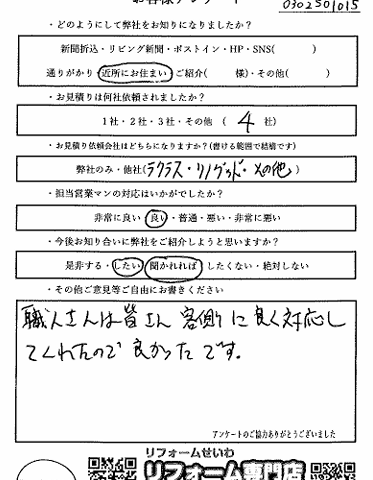 お客様アンケート
0302501015
・どのようにして弊社をお知りになりましたか？
新聞折込・リビング新聞・ポストイン・HP・SNS(　　　)
通りがかり・近所にお住まい・ご紹介(　　様)・その他(　　)
・お見積りは何社依頼されましたか？
1社・2社・3社・その他　(　4　社)
・お見積り依頼会社はどちらになりますか？(書ける範囲で結構です)
弊社のみ・他社(ラクラス・リノグッド・その他)
・担当営業マンの対応はいかがでしたか？
非常に良い・良い・普通・悪い・非常に悪い
・今後お知り合いに弊社をご紹介しようと思いますか？
是非する・したい・聞かれれば・したくない・絶対しない
・その他ご意見等ご自由にお書きください
職人さんは皆さん 客側に良く対応し
てくれたので良かったです。
アンケートのご協力ありがとうございました
リフォームせいわ
リフォーム専門店